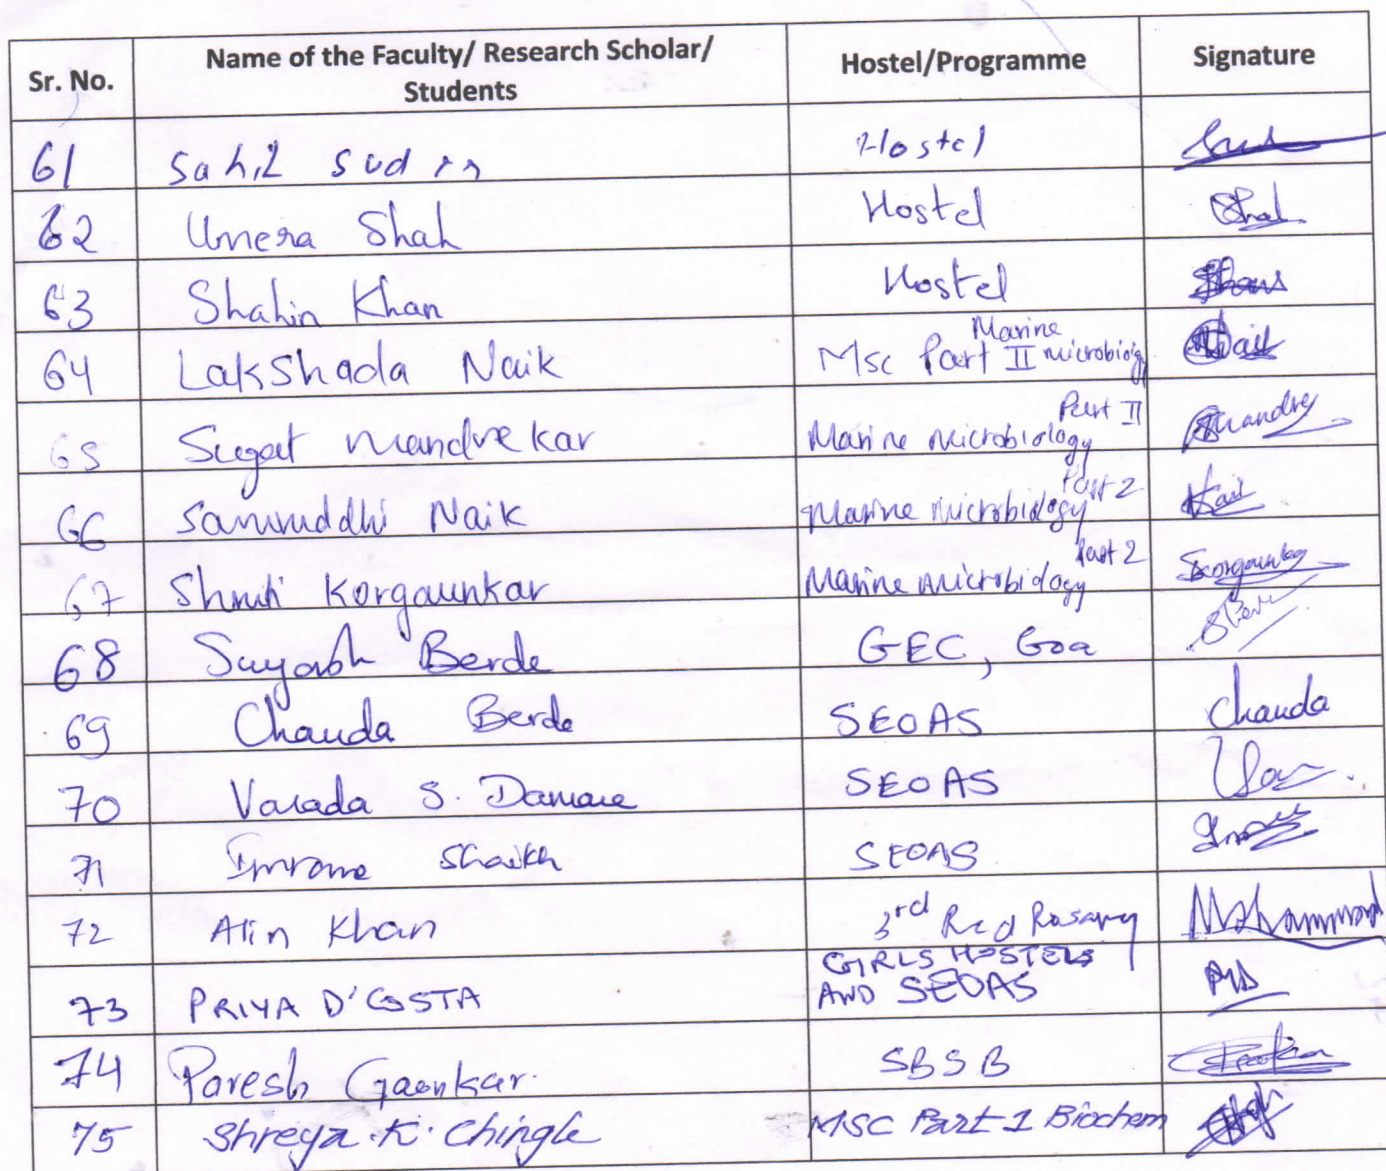 Sr. No. Name of the Faculty/ Research Scholar/ Students Hostel/Programme Signature
61 Sahil Hostel
62 Umera Shah Hostel Shah
63 Shahin Khan Hostel
64 Lakshada Naik Msc Part II Marine microbiology Naik
65 Sugat Mandrekar Marine Microbiology Part II
66 Samruddhi Naik Marine Microbiology Part 2 Naik
67 Shruti Korgaunkar Marine Microbiology Part 2 Skorgaunkar
68 Suyash Berde GEC, Goa
69 Chanda Berde SEOAS Chanda
70 Varada S. Damare SEOAS
71 Imrana Shaikh SEOAS
72 Alin Khan 3rd Rosary Mohammad
73 PRIYA D'COSTA GIRLS HOSTELS AND SEOAS
74 Paresh Gaonkar. SBSB
75 Shreya. K. Chingle MSC Part 1 Biochem